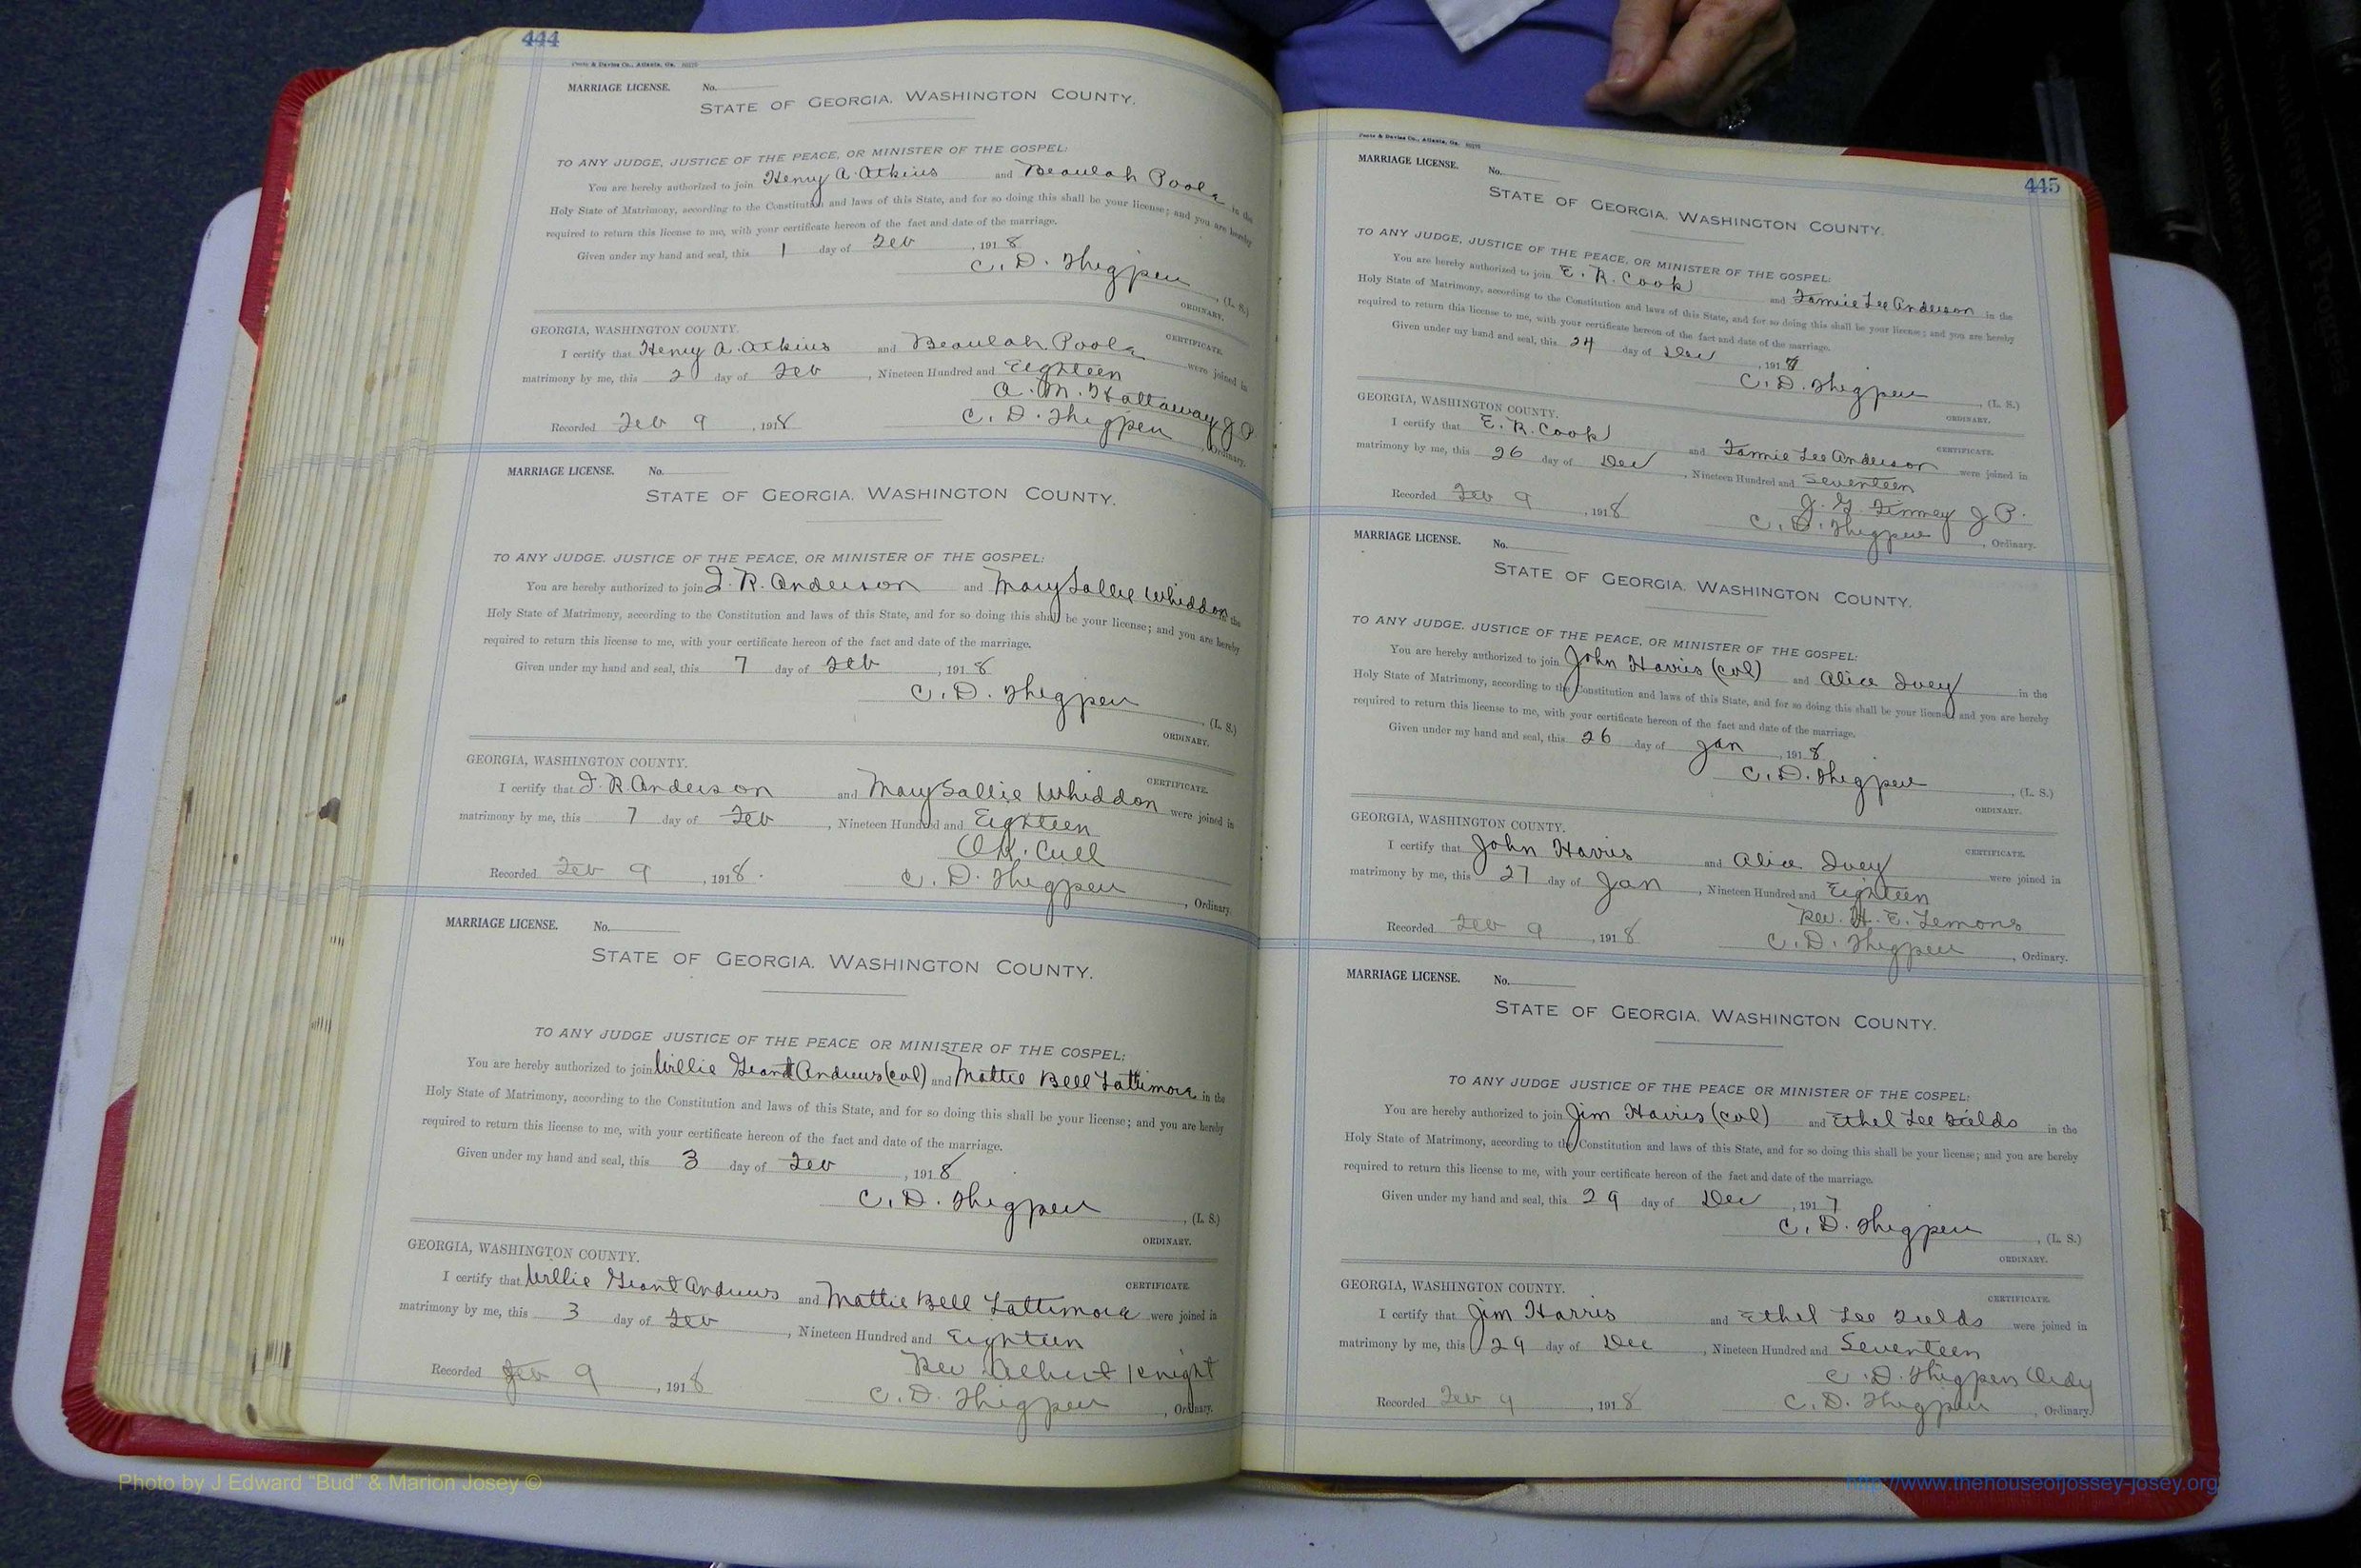 444
Foote & Davies Co., Atlanta, Ga.
MARRIAGE LICENSE. No.
STATE OF GEORGIA, WASHINGTON COUNTY.
TO ANY JUDGE, JUSTICE OF THE PEACE, OR MINISTER OF THE GOSPEL:
You are hereby authorized to join Henry A. Atkins and Beaulah Poole in the
Holy State of Matrimony, according to the Constitution and laws of this State, and for so doing this shall be your license; and you are hereby
required to return this license to me, with your certificate hereon of the fact and date of the marriage.
Given under my hand and seal, this 1 day of Feb, 1918
C. D. Thigpen, (L. S.)
ORDINARY.
GEORGIA, WASHINGTON COUNTY.
CERTIFICATE.
I certify that Henry A. Atkins and Beaulah Poole were joined in
matrimony by me, this 2 day of Feb, Nineteen Hundred and Eighteen
A. M. Hattaway J P
Recorded Feb 9, 1918 C. D. Thigpen, Ordinary.
MARRIAGE LICENSE. No.
STATE OF GEORGIA, WASHINGTON COUNTY.
TO ANY JUDGE, JUSTICE OF THE PEACE, OR MINISTER OF THE GOSPEL:
You are hereby authorized to join J. R. Anderson and Mary Sallie Whiddon in the
Holy State of Matrimony, according to the Constitution and laws of this State, and for so doing this shall be your license; and you are hereby
required to return this license to me, with your certificate hereon of the fact and date of the marriage.
Given under my hand and seal, this 7 day of Feb, 1918
C. D. Thigpen, (L. S.)
ORDINARY.
GEORGIA, WASHINGTON COUNTY.
CERTIFICATE.
I certify that J. R. Anderson and Mary Sallie Whiddon were joined in
matrimony by me, this 7 day of Feb, Nineteen Hundred and Eighteen
O.K. Cull
Recorded Feb 9, 1918. C. D. Thigpen, Ordinary.
MARRIAGE LICENSE. No.
STATE OF GEORGIA, WASHINGTON COUNTY.
TO ANY JUDGE JUSTICE OF THE PEACE OR MINISTER OF THE GOSPEL:
You are hereby authorized to join Willie Grant Andrews (col) and Mattie Bell Lattimore in the
Holy State of Matrimony, according to the Constitution and laws of this State, and for so doing this shall be your license; and you are hereby
required to return this license to me, with your certificate hereon of the fact and date of the marriage.
Given under my hand and seal, this 3 day of Feb, 1918
C. D. Thigpen, (L. S.)
ORDINARY.
GEORGIA, WASHINGTON COUNTY.
CERTIFICATE.
I certify that Willie Grant Andrews and Mattie Bell Lattimore were joined in
matrimony by me, this 3 day of Feb, Nineteen Hundred and Eighteen
Rev Albert Knight
Recorded Feb 9, 1918 C. D. Thigpen, Ordinary.
445
Foote & Davies Co., Atlanta, Ga.
MARRIAGE LICENSE. No.
STATE OF GEORGIA, WASHINGTON COUNTY.
TO ANY JUDGE, JUSTICE OF THE PEACE, OR MINISTER OF THE GOSPEL:
You are hereby authorized to join E. R. Cook and Fannie Lee Anderson in the
Holy State of Matrimony, according to the Constitution and laws of this State, and for so doing this shall be your license; and you are hereby
required to return this license to me, with your certificate hereon of the fact and date of the marriage.
Given under my hand and seal, this 24 day of Dec, 1917
C. D. Thigpen, (L. S.)
ORDINARY.
GEORGIA, WASHINGTON COUNTY.
CERTIFICATE.
I certify that E. R. Cook and Fannie Lee Anderson were joined in
matrimony by me, this 26 day of Dec, Nineteen Hundred and Seventeen
J. G. Finney J P.
Recorded Feb 9, 1918 C. D. Thigpen, Ordinary.
MARRIAGE LICENSE. No.
STATE OF GEORGIA, WASHINGTON COUNTY.
TO ANY JUDGE, JUSTICE OF THE PEACE, OR MINISTER OF THE GOSPEL:
You are hereby authorized to join John Harris (col) and Alice Ivey in the
Holy State of Matrimony, according to the Constitution and laws of this State, and for so doing this shall be your license; and you are hereby
required to return this license to me, with your certificate hereon of the fact and date of the marriage.
Given under my hand and seal, this 26 day of Jan, 1918
C. D. Thigpen, (L. S.)
ORDINARY.
GEORGIA, WASHINGTON COUNTY.
CERTIFICATE.
I certify that John Harris and Alice Ivey were joined in
matrimony by me, this 27 day of Jan, Nineteen Hundred and Eighteen
Rev. H. E. Lemons
Recorded Feb 9, 1918 C. D. Thigpen, Ordinary.
MARRIAGE LICENSE. No.
STATE OF GEORGIA, WASHINGTON COUNTY.
TO ANY JUDGE JUSTICE OF THE PEACE OR MINISTER OF THE GOSPEL:
You are hereby authorized to join Jim Harris (col) and Ethel Lee Fields in the
Holy State of Matrimony, according to the Constitution and laws of this State, and for so doing this shall be your license; and you are hereby
required to return this license to me, with your certificate hereon of the fact and date of the marriage.
Given under my hand and seal, this 29 day of Dec, 1917
C. D. Thigpen, (L. S.)
ORDINARY.
GEORGIA, WASHINGTON COUNTY.
CERTIFICATE.
I certify that Jim Harris and Ethel Lee Fields were joined in
matrimony by me, this 29 day of Dec, Nineteen Hundred and Seventeen
C. D. Thigpen Ordy
Recorded Feb 9, 1918 C. D. Thigpen, Ordinary.
Photo by J Edward "Bud" & Marion Josey ©
http://www.thehouseofjossey-josey.org